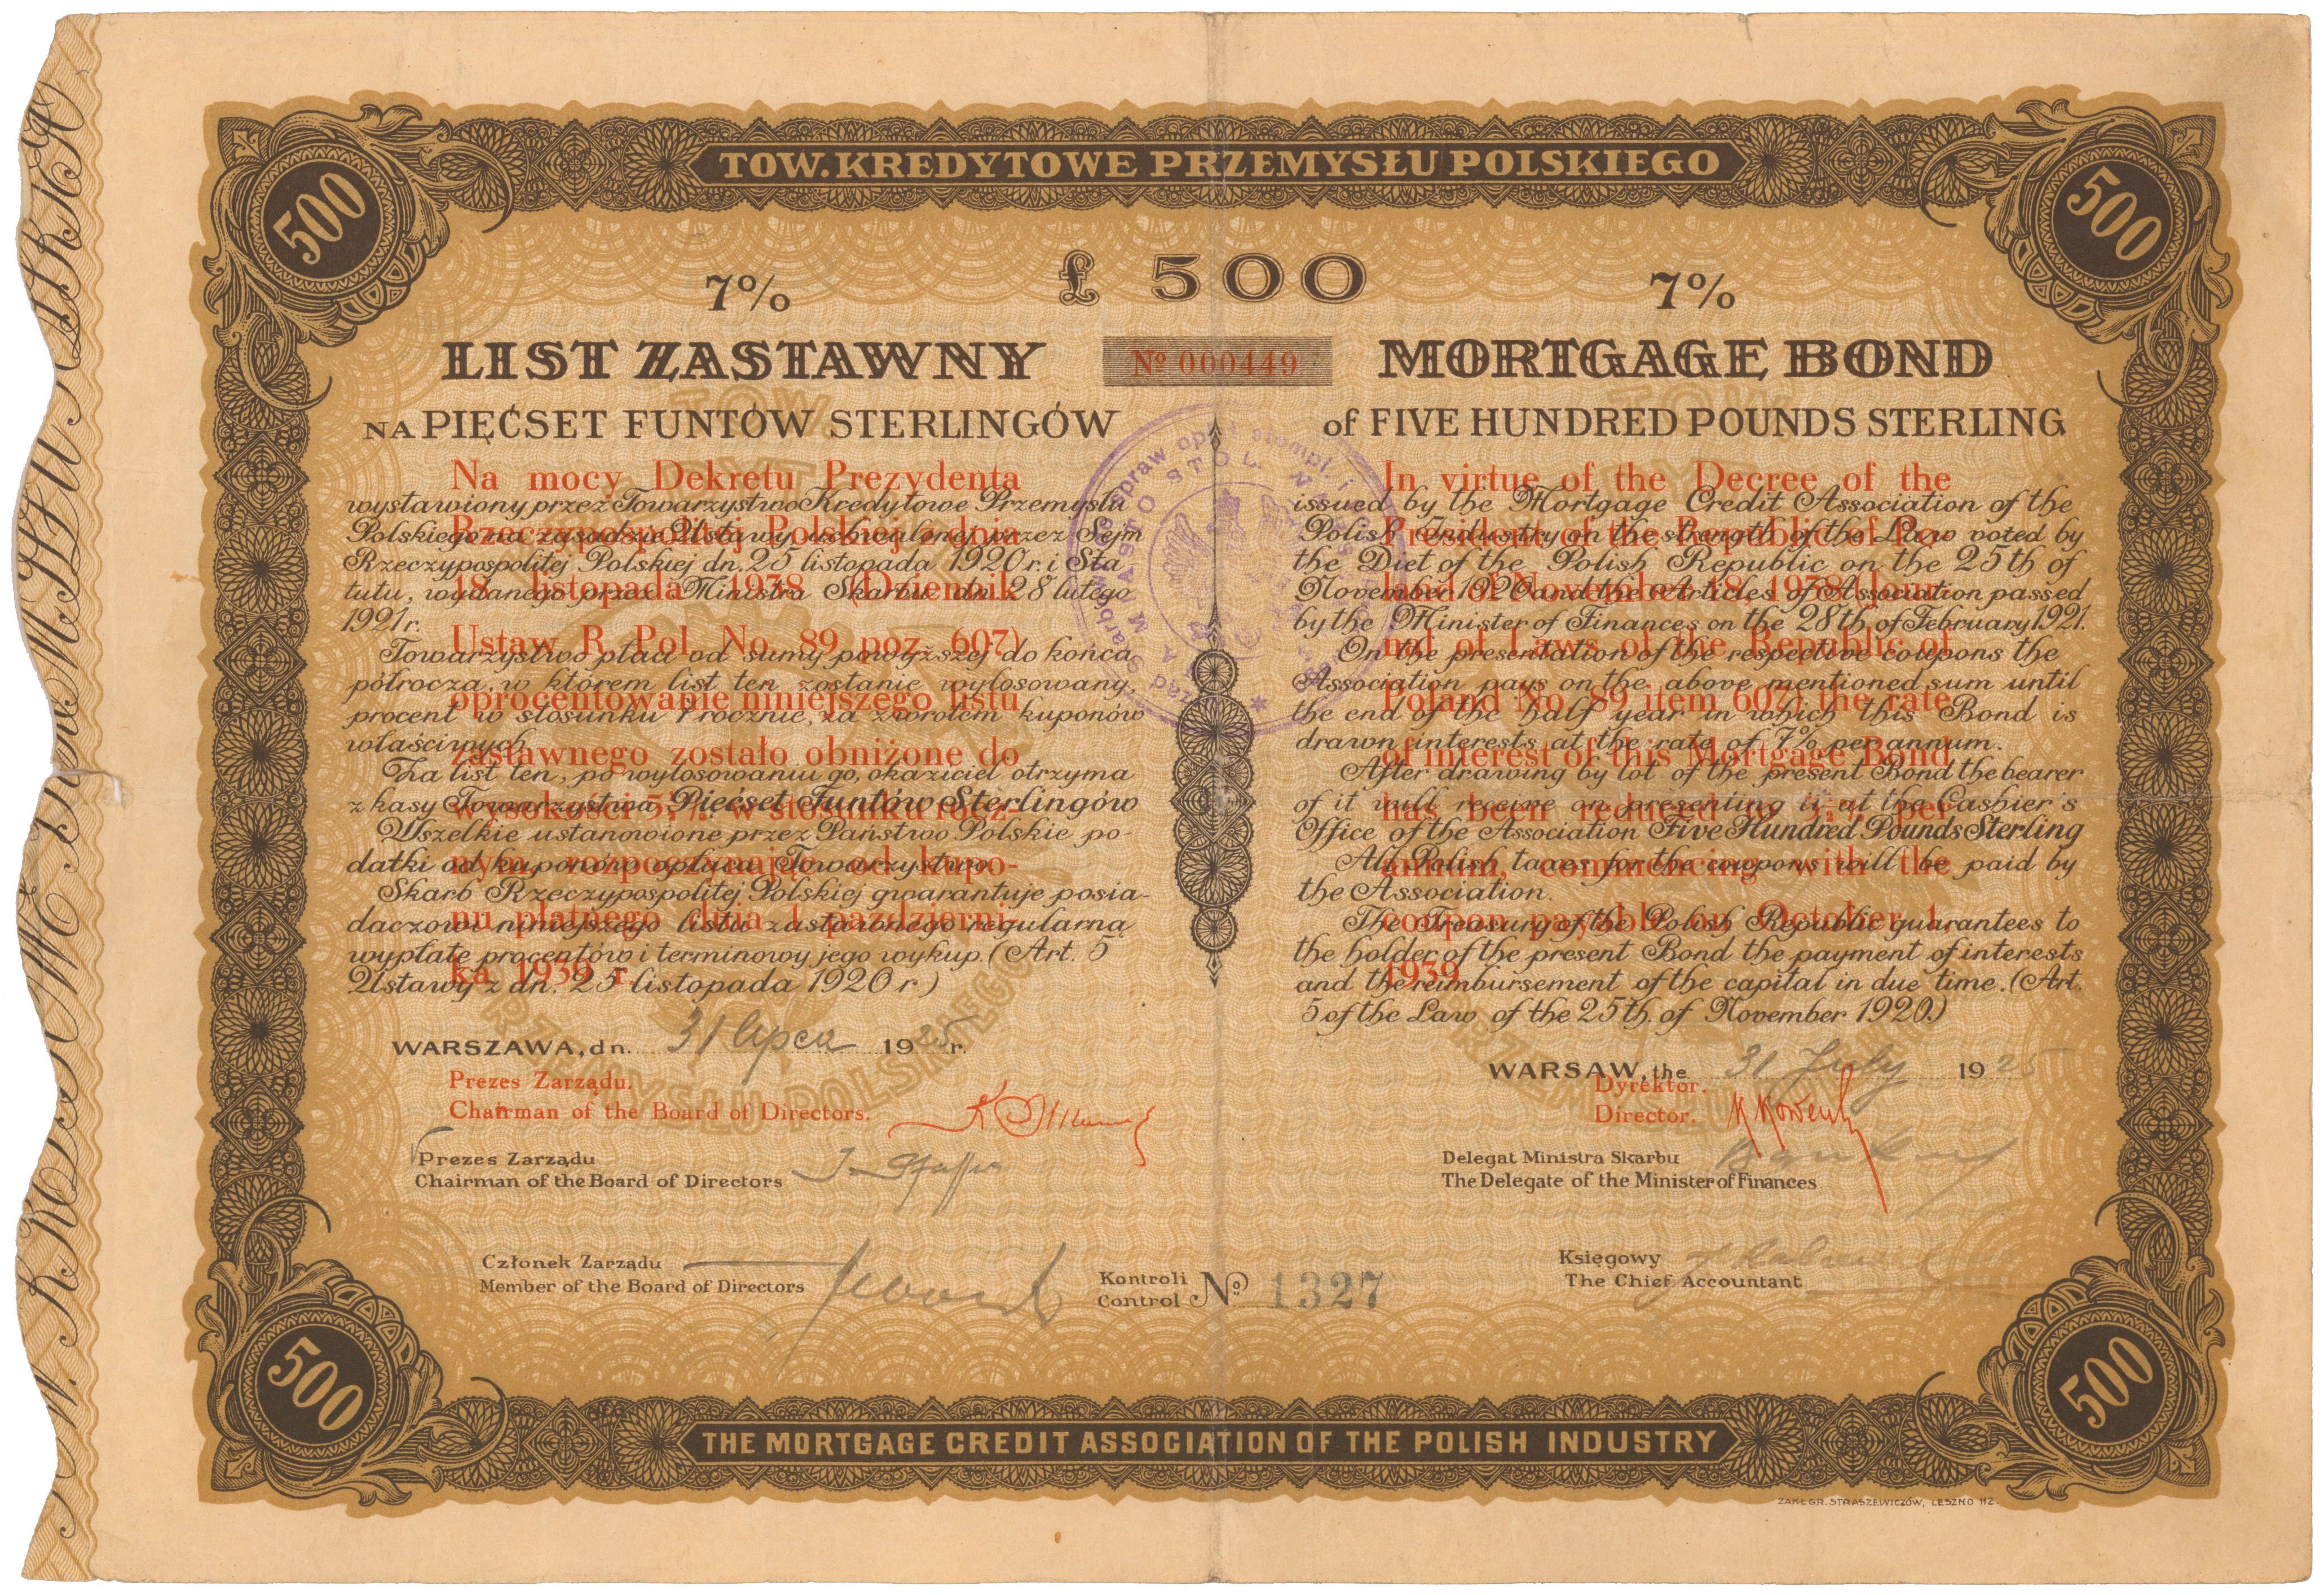 TOW. KREDYTOWE PRZEMYSŁU POLSKIEGO
500
500
£ 500
7%
7%
LIST ZASTAWNY
Nº 000449
MORTGAGE BOND
NA PIĘĆSET FUNTÓW STERLINGÓW
of FIVE HUNDRED POUNDS STERLING
Na mocy Dekretu Prezydenta
Rzeczypospolitej Polskiej z dnia
18 listopada 1938 (Dziennik
Ustaw R. Pol. No. 89 poz. 607)
oprocentowanie niniejszego listu
zastawnego zostało obniżone do
wysokości 5½% w stosunku rocz-
nym, rozpoczynając od kupo-
nu płatnego dnia 1 październi-
ka 1939 r.
wystawiony przez Towarzystwo Kredytowe Przemysłu
Polskiego na zasadzie Ustawy uchwalonej przez Sejm
Rzeczypospolitej Polskiej dn. 25 listopada 1920 r. i Sta
tutu, wydanego przez Ministra Skarbu dn. 28 lutego
1921 r.
Towarzystwo płaci od sumy powyższej do końca
półrocza, w którem list ten zostanie wylosowany,
procent w stosunku 7 rocznie, za zwrotem kuponów
właściwych.
Za list ten, po wylosowaniu go, okaziciel otrzyma
z kasy Towarzystwa Pięćset Funtów Sterlingów
Wszelkie ustanowione przez Państwo Polskie po-
datki od kuponów opłaca Towarzystwo.
Skarb Rzeczypospolitej Polskiej gwarantuje posia-
daczowi niniejszego listu zastawnego regularną
wypłatę procentów i terminowy jego wykup. (Art. 5
Ustawy z dn. 25 listopada 1920 r.)
In virtue of the Decree of the
President of the Republic of Po-
land of November 18, 1938 (Jour-
nal of Laws of the Republic of
Poland No. 89 item 607) the rate
of interest of this Mortgage Bond
has been reduced to 5½% per
annum, commencing with the
coupon payable on October 1,
1939
issued by the Mortgage Credit Association of the
Polish Industry on the strength of the Law voted by
the Diet of the Polish Republic on the 25th of
November 1920 and the Articles of Association passed
by the Minister of Finances on the 28th of February 1921.
On the presentation of the respective coupons the
Association pays on the above mentioned sum until
the end of the half year in which this Bond is
drawn interests at the rate of 7% per annum.
After drawing by lot of the present Bond the bearer
of it will receive on presenting it at the Cashier's
Office of the Association Five Hundred Pounds Sterling
All Polish taxes for the coupons will be paid by
the Association.
The Treasury of the Polish Republic guarantees to
the holder of the present Bond the payment of interests
and the reimbursement of the capital in due time. (Art.
5 of the Law of the 25th of November 1920.)
WARSZAWA, dn. 31 lipca 1925 r.
WARSAW, the 31 July 1925
Prezes Zarządu.
Chairman of the Board of Directors.
Dyrektor.
Director.
Prezes Zarządu
Chairman of the Board of Directors
Delegat Ministra Skarbu
The Delegate of the Minister of Finances
Członek Zarządu
Member of the Board of Directors
Kontroli
Control Nº 1327
Księgowy
The Chief Accountant
500
500
THE MORTGAGE CREDIT ASSOCIATION OF THE POLISH INDUSTRY
ZAKŁ. GR. STRASZEWICZÓW, LESZNO 112.